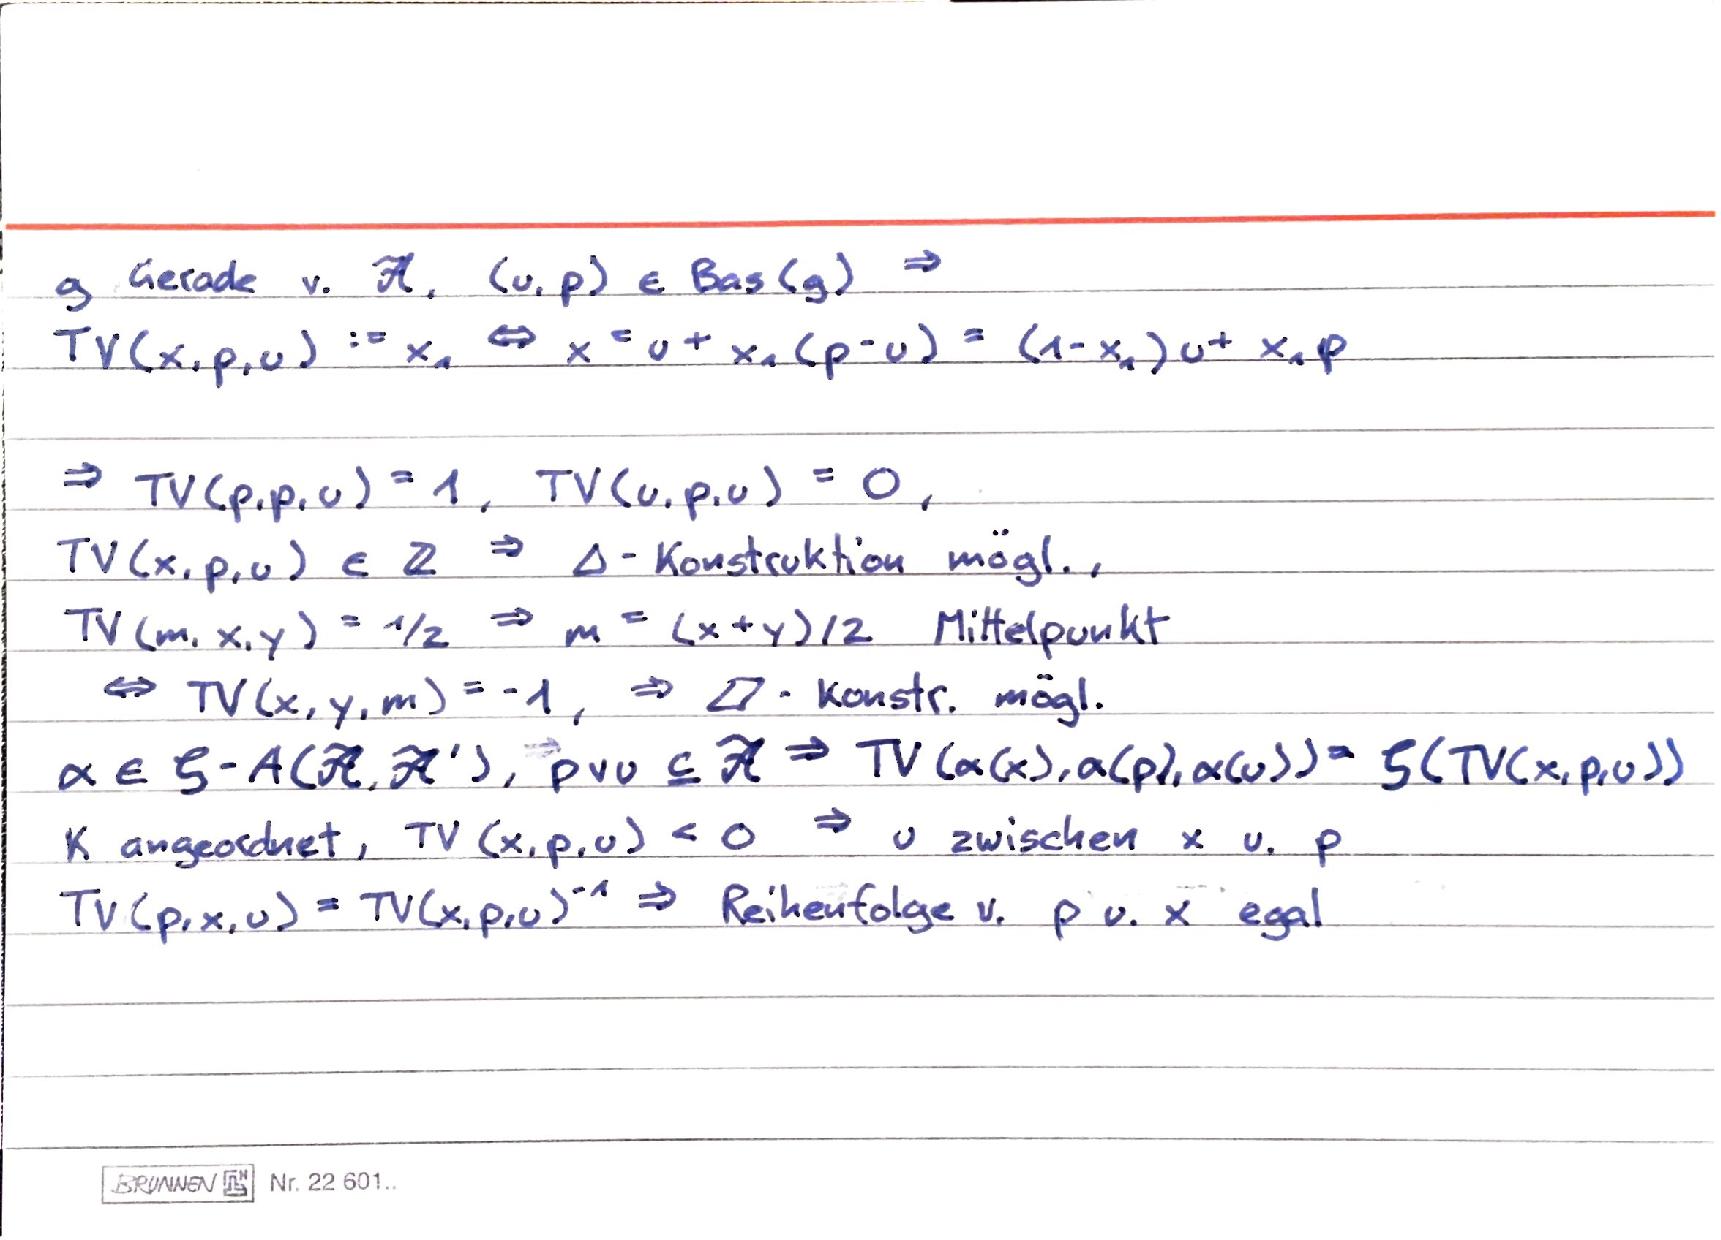 g Gerade v. 𝒜, (u,p) ∈ Bas(g) ⇒
TV(x,p,u) := x₁ ⇔ x = u + x₁(p-u) = (1-x₁)u + x₁p
⇒ TV(p,p,u) = 1, TV(u,p,u) = 0,
TV(x,p,u) ∈ ℤ ⇒ Δ-Konstruktion mögl.,
TV(m,x,y) = 1/2 ⇒ m = (x+y)/2 Mittelpunkt
⇔ TV(x,y,m) = -1, ⇒ ▱-Konstr. mögl.
α ∈ ζ-A(𝒜,𝒜'), p∨u ⊆ 𝒜 ⇒ TV(α(x),α(p),α(u)) = ζ(TV(x,p,u))
K angeordnet, TV(x,p,u) < 0 ⇒ u zwischen x u. p
TV(p,x,u) = TV(x,p,u)⁻¹ ⇒ Reihenfolge v. p u. x egal
BRUNNEN Nr. 22 601..